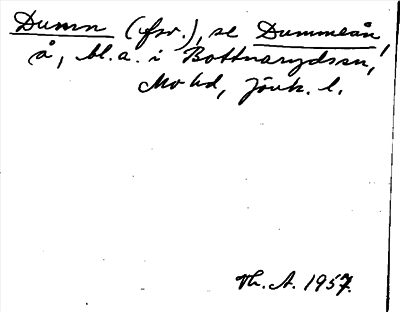 Dumn (fsv.), se Dummeån,
å, bl.a. i Bottnarydssn,
Mo hd, Jönk. l.
Vh. A. 1957.